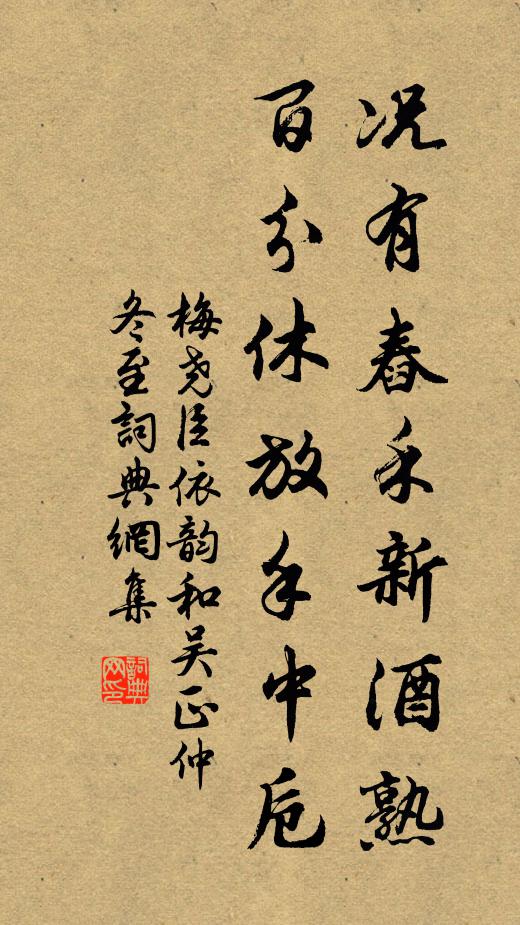 况有舂禾新酒熟
百分休放手中卮
梅尧臣依韵和吴正仲
冬至詞典網集
詞典網印